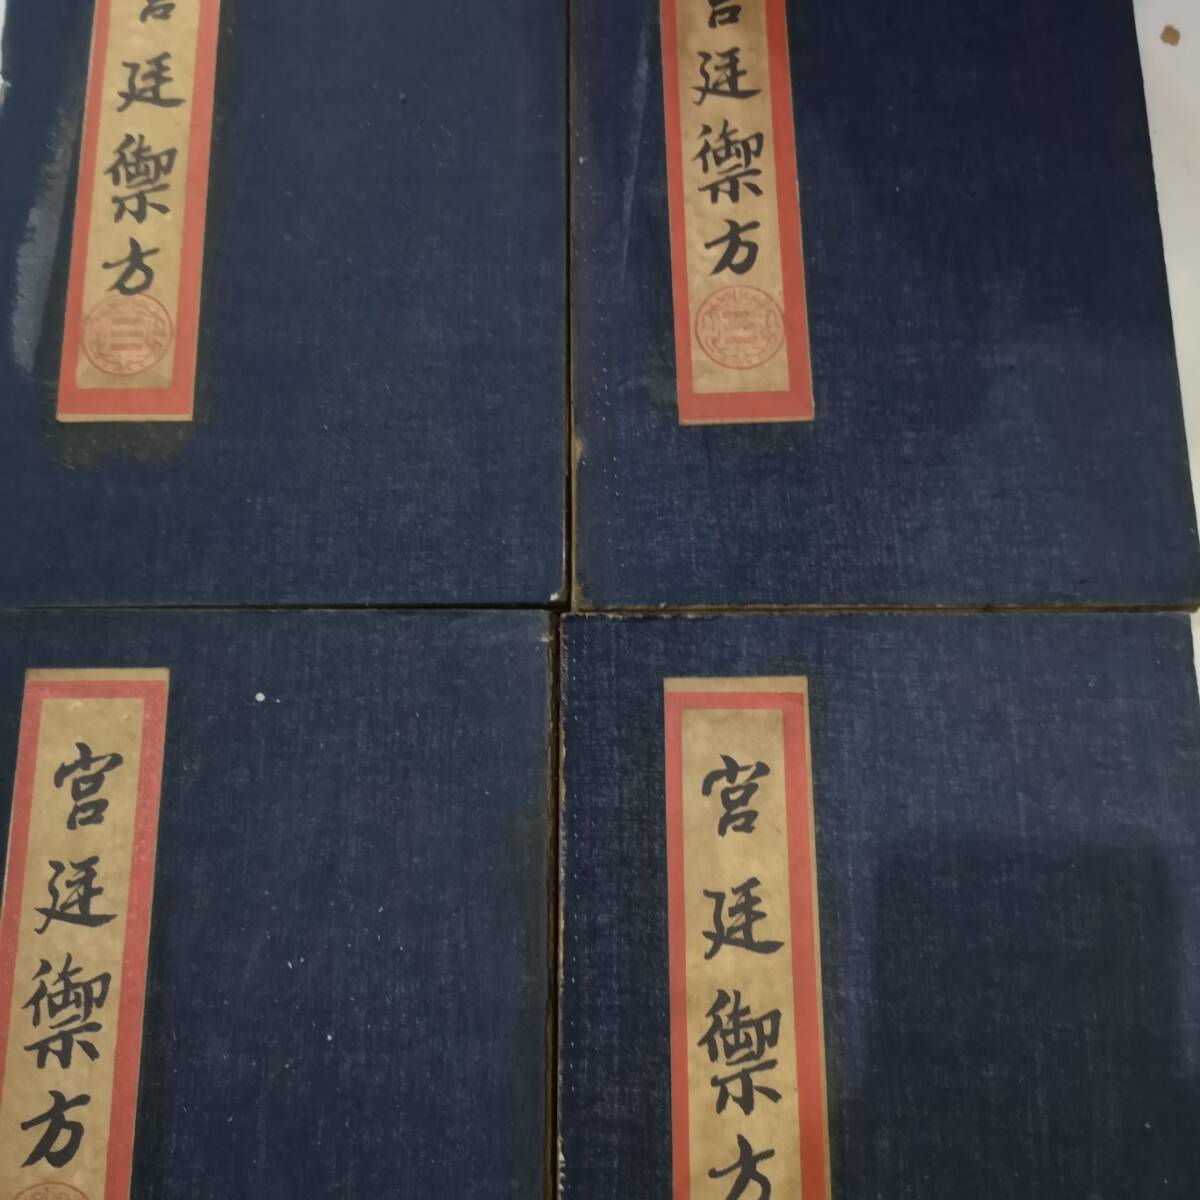 宫廷禦方
宫廷禦方
宫廷禦方
宫廷禦方